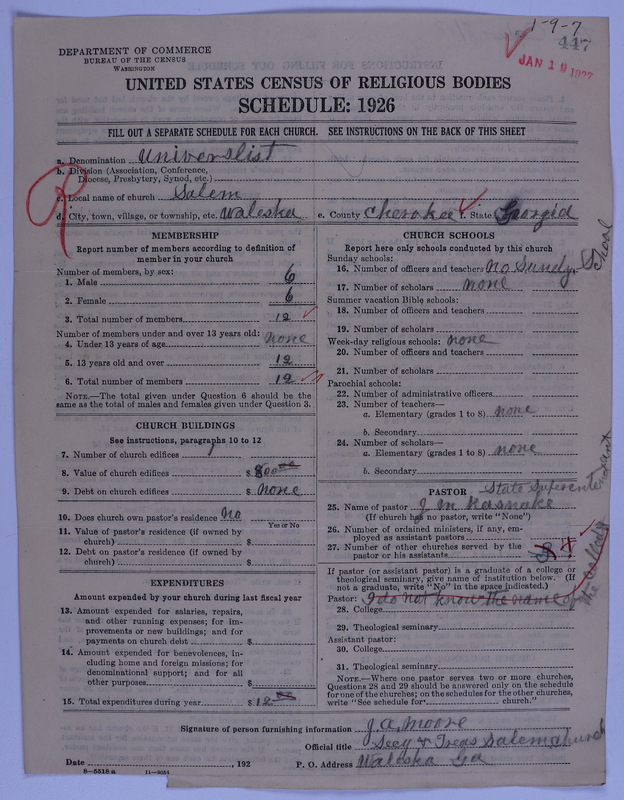 1-9-7
447
JAN 1 1927
DEPARTMENT OF COMMERCE
BUREAU OF THE CENSUS
WASHINGTON
UNITED STATES CENSUS OF RELIGIOUS BODIES
SCHEDULE: 1926
FILL OUT A SEPARATE SCHEDULE FOR EACH CHURCH. SEE INSTRUCTIONS ON THE BACK OF THIS SHEET
a. Denomination Universlist
b. Division (Association, Conference,
Diocese, Presbytery, Synod, etc.)
R
c. Local name of church Salem
d. City, town, village, or township, etc. Waleska e. County Cherokee f. State Georgia
MEMBERSHIP
Report number of members according to definition of
member in your church
Number of members, by sex:
1. Male 6
2. Female 6
3. Total number of members 12
Number of members under and over 13 years old:
4. Under 13 years of age none
5. 13 years old and over 12
6. Total number of members 12
NOTE.—The total given under Question 6 should be the
same as the total of males and females given under Question 3.
CHURCH BUILDINGS
See instructions, paragraphs 10 to 12
7. Number of church edifices 1
8. Value of church edifices $ 800 00
9. Debt on church edifices $ none
10. Does church own pastor's residence No
Yes or No
11. Value of pastor's residence (if owned by
church) $
12. Debt on pastor's residence (if owned by
church) $
EXPENDITURES
Amount expended by your church during last fiscal year
13. Amount expended for salaries, repairs,
and other running expenses; for im-
provements or new buildings; and for
payments on church debt $
14. Amount expended for benevolences, in-
cluding home and foreign missions; for
denominational support; and for all
other purposes $
15. Total expenditures during year $ 12 00
CHURCH SCHOOLS
Report here only schools conducted by this church
Sunday schools:
16. Number of officers and teachers no Sundy School
17. Number of scholars none
Summer vacation Bible schools:
18. Number of officers and teachers
19. Number of scholars
Week-day religious schools: none
20. Number of officers and teachers
21. Number of scholars
Parochial schools:
22. Number of administrative officers
23. Number of teachers—
a. Elementary (grades 1 to 8) none
b. Secondary
24. Number of scholars—
a. Elementary (grades 1 to 8) none
b. Secondary
PASTOR State
25. Name of pastor J M
(If church has no pastor, write "None")
26. Number of ordained ministers, if any, em-
ployed as assistant pastors
27. Number of other churches served by the
pastor or his assistants 4
If pastor (or assistant pastor) is a graduate of a college or
theological seminary, give name of institution below. (If
not a graduate, write "No" in the space indicated.)
Pastor: I do not know the name of the College
28. College
29. Theological seminary
Assistant pastor:
30. College
31. Theological seminary
NOTE.—Where one pastor serves two or more churches,
Questions 28 and 29 should be answered only on the schedule
for one of the churches; on the schedules for the other churches,
write "See schedule for church."
Signature of person furnishing information J. A. Moore
Official title Secy & Treas Salem Church
Date , 192 P. O. Address Waleska Ga
8—5518 a 11—9054